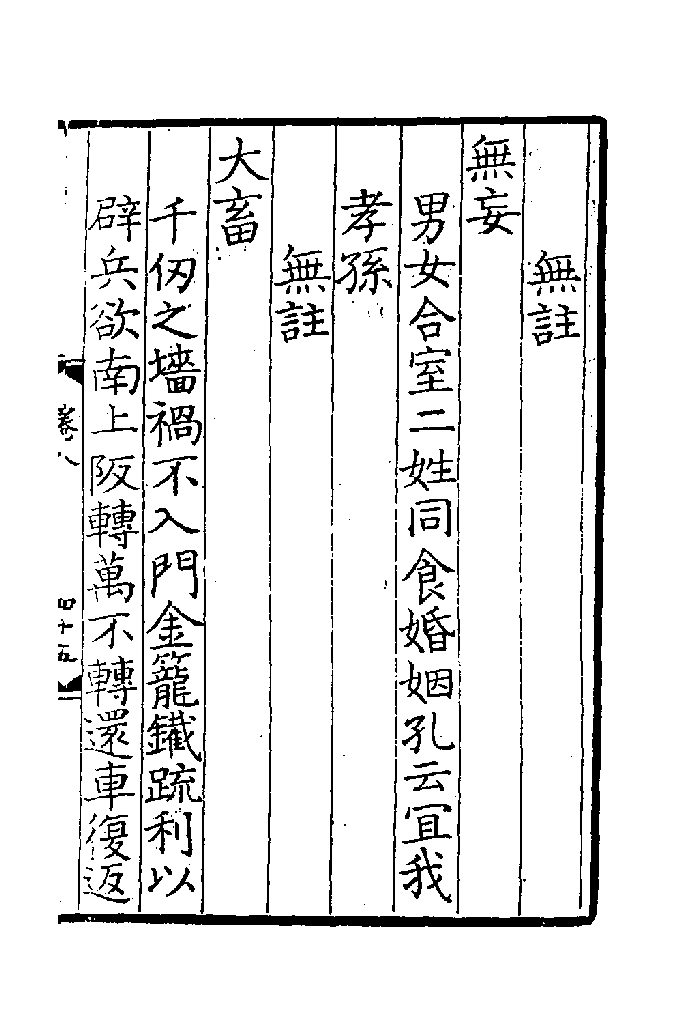 無註
無妄
男女合室二姓同食婚姻孔云冝我
孝孫
無註
大畜
千仭之墻禍不入門金籠鐵疏利以
辟兵欲南上阪轉萬不轉還車復返
卷八
四十五